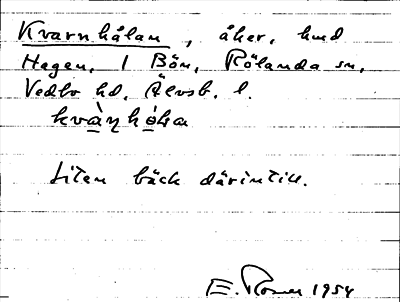 Kvarnhålan, åker, hmd
Hagen, 1 Bön, Rölanda sn,
Vedbo hd, Älvsb. l.
kvàɳhóɫa
Liten bäck därintill.
E. Rosner 1954